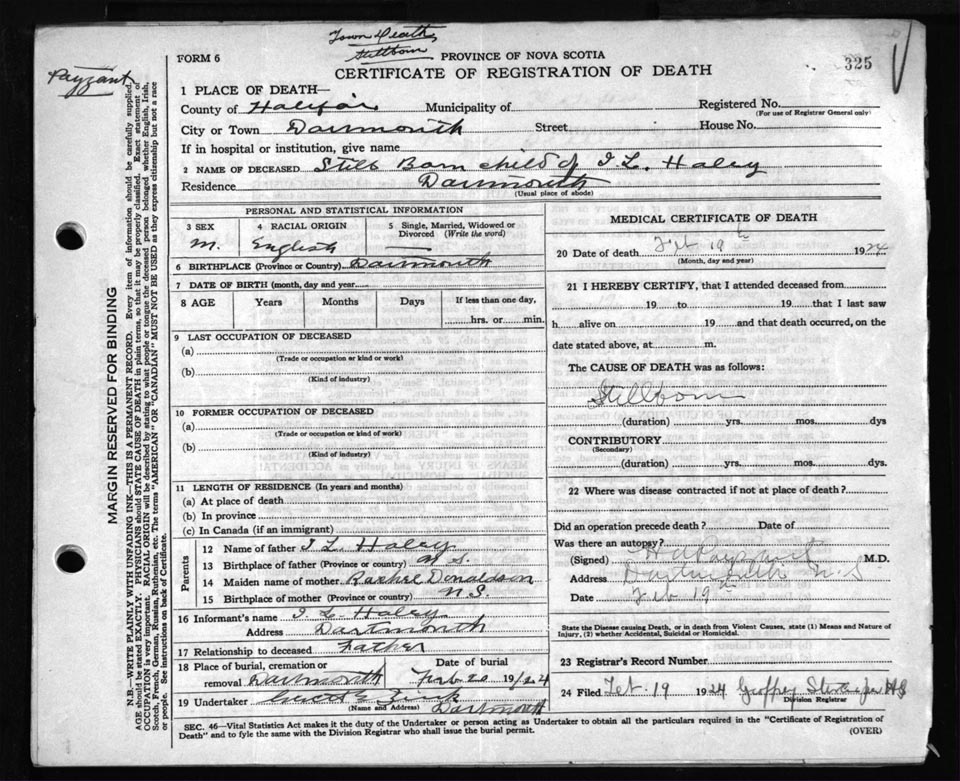 Town Death
Stillborn
FORM 6
PROVINCE OF NOVA SCOTIA
325
CERTIFICATE OF REGISTRATION OF DEATH
Payzant
1 PLACE OF DEATH—
County of Halifax Municipality of Registered No.
(For use of Registrar General only)
City or Town Dartmouth Street House No.
If in hospital or institution, give name
2 NAME OF DECEASED Still Born child of I. L. Haley
Residence Dartmouth
(Usual place of abode)
PERSONAL AND STATISTICAL INFORMATION
3 SEX 4 RACIAL ORIGIN 5 Single, Married, Widowed or Divorced (Write the word)
M. English —
6 BIRTHPLACE (Province or Country) Dartmouth
7 DATE OF BIRTH (month, day and year)
8 AGE Years Months Days If less than one day,
hrs. or min.
9 LAST OCCUPATION OF DECEASED
(a)
(Trade or occupation or kind of work)
(b)
(Kind of industry)
10 FORMER OCCUPATION OF DECEASED
(a)
(Trade or occupation or kind of work)
(b)
(Kind of industry)
11 LENGTH OF RESIDENCE (In years and months)
(a) At place of death
(b) In province
(c) In Canada (if an immigrant)
Parents
12 Name of father I L. Haley
13 Birthplace of father (Province or country) N S.
14 Maiden name of mother Rachel Donaldson
15 Birthplace of mother (Province or country) N S.
16 Informant's name I L. Haley
Address Dartmouth
17 Relationship to deceased Father
18 Place of burial, cremation or removal Dartmouth Date of burial Feb 20 1924
19 Undertaker Dartmouth
(Name and Address)
MEDICAL CERTIFICATE OF DEATH
20 Date of death Feb 19th 1924
(Month, day and year)
21 I HEREBY CERTIFY, that I attended deceased from
19 to 19 that I last saw
h alive on 19 and that death occurred, on the
date stated above, at m.
The CAUSE OF DEATH was as follows:
Stillborn
(duration) yrs. mos. dys
CONTRIBUTORY
(Secondary)
(duration) yrs. mos. dys.
22 Where was disease contracted if not at place of death?
Did an operation precede death? Date of
Was there an autopsy?
(Signed) Payzant M.D.
Address Dartmouth N.S
Date Feb 19th
State the Disease causing Death, or in death from Violent Causes, state (1) Means and Nature of
Injury, (2) whether Accidental, Suicidal or Homicidal.
23 Registrar's Record Number
24 Filed Feb. 19 1924 Geoffrey
Division Registrar
SEC. 46—Vital Statistics Act makes it the duty of the Undertaker or person acting as Undertaker to obtain all the particulars required in the "Certificate of Registration of
Death" and to fyle the same with the Division Registrar who shall issue the burial permit.
(OVER)
MARGIN RESERVED FOR BINDING
N.B.—WRITE PLAINLY WITH UNFADING INK—THIS IS A PERMANENT RECORD. Every item of information should be carefully supplied.
AGE should be stated EXACTLY. PHYSICIANS should STATE CAUSE OF DEATH in plain terms, so that it may be properly classified. Exact statement of
OCCUPATION is very important. RACIAL ORIGIN will be described by stating to what people or tongue the deceased person belonged whether English, Irish,
Scotch, French, German, Russian, Ruthenian, etc. The terms "AMERICAN" OR "CANADIAN" MUST NOT BE USED as they express citizenship but not a race
or people. See instructions on back of Certificate.